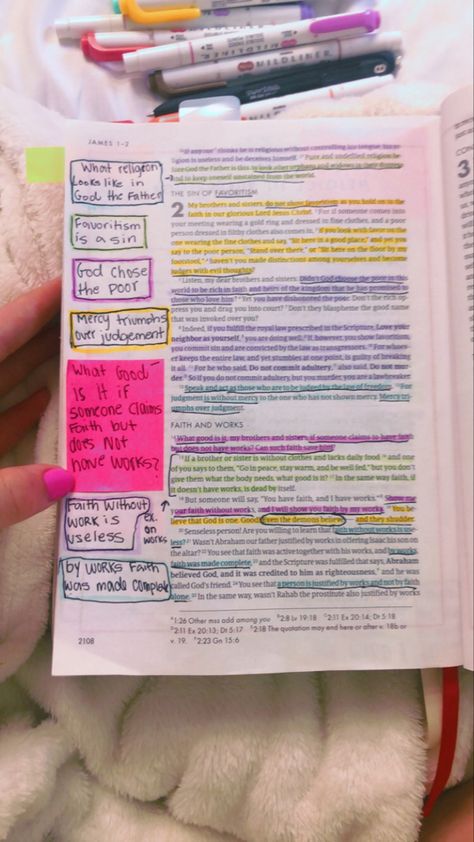 MILDLINER
MILDLINER
JAMES 1–2
What religion
Looks like in
God the Father
Favoritism
is a sin
God chose
the poor
Mercy triumphs
over judgement
What Good
is it if
someone claims
Faith but
does Not
have works?
Faith without
work is
useless
ex.
on
works
by works Faith
was made complete
ligion is useless and he deceives himself. 27 Pure and undefiled religion be-
fore God the Father is this: to look after orphans and widows in their distress
and to keep oneself unstained from the world.
THE SIN OF FAVORITISM
2 My brothers and sisters, do not show favoritism as you hold on to the
faith in our glorious Lord Jesus Christ. 2 For if someone comes into
your meeting wearing a gold ring and dressed in fine clothes, and a poor
person dressed in filthy clothes also comes in, 3 if you look with favor on the
one wearing the fine clothes and say, "Sit here in a good place," and yet you
say to the poor person, "Stand over there," or "Sit here on the floor by my
footstool," 4 haven't you made distinctions among yourselves and become
judges with evil thoughts?
5 Listen, my dear brothers and sisters: Didn't God choose the poor in this
world to be rich in faith and heirs of the kingdom that he has promised to
those who love him? 6 Yet you have dishonored the poor. Don't the rich op-
press you and drag you into court? 7 Don't they blaspheme the good name
that was invoked over you?
8 Indeed, if you fulfill the royal law prescribed in the Scripture, Love your
neighbor as yourself, you are doing well. 9 If, however, you show favoritism,
you commit sin and are convicted by the law as transgressors. 10 For whoev-
er keeps the entire law, and yet stumbles at one point, is guilty of breaking
it all. 11 For he who said, Do not commit adultery, also said, Do not mur-
der. So if you do not commit adultery, but you murder, you are a lawbreaker.
12 Speak and act as those who are to be judged by the law of freedom. 13 For
judgment is without mercy to the one who has not shown mercy. Mercy tri-
umphs over judgment.
FAITH AND WORKS
14 What good is it, my brothers and sisters, if someone claims to have faith
but does not have works? Can such faith save him?
15 If a brother or sister is without clothes and lacks daily food 16 and one
of you says to them, "Go in peace, stay warm, and be well fed," but you don't
give them what the body needs, what good is it? 17 In the same way faith, if
it doesn't have works, is dead by itself.
18 But someone will say, "You have faith, and I have works." Show me
your faith without works, and I will show you faith by my works. 19 You be-
lieve that God is one. Good! Even the demons believe — and they shudder.
20 Senseless person! Are you willing to learn that faith without works is use-
less? 21 Wasn't Abraham our father justified by works in offering Isaac his son on
the altar? 22 You see that faith was active together with his works, and by works,
faith was made complete, 23 and the Scripture was fulfilled that says, Abraham
believed God, and it was credited to him as righteousness, and he was
called God's friend. 24 You see that a person is justified by works and not by faith
alone. 25 In the same way, wasn't Rahab the prostitute also justified by works
1:26 Other mss add among you 2:8 Lv 19:18 2:11 Ex 20:14; Dt 5:18
2:11 Ex 20:13; Dt 5:17 2:18 The quotation may end here or after v. 18b or
v. 19. 2:23 Gn 15:6
2108
3